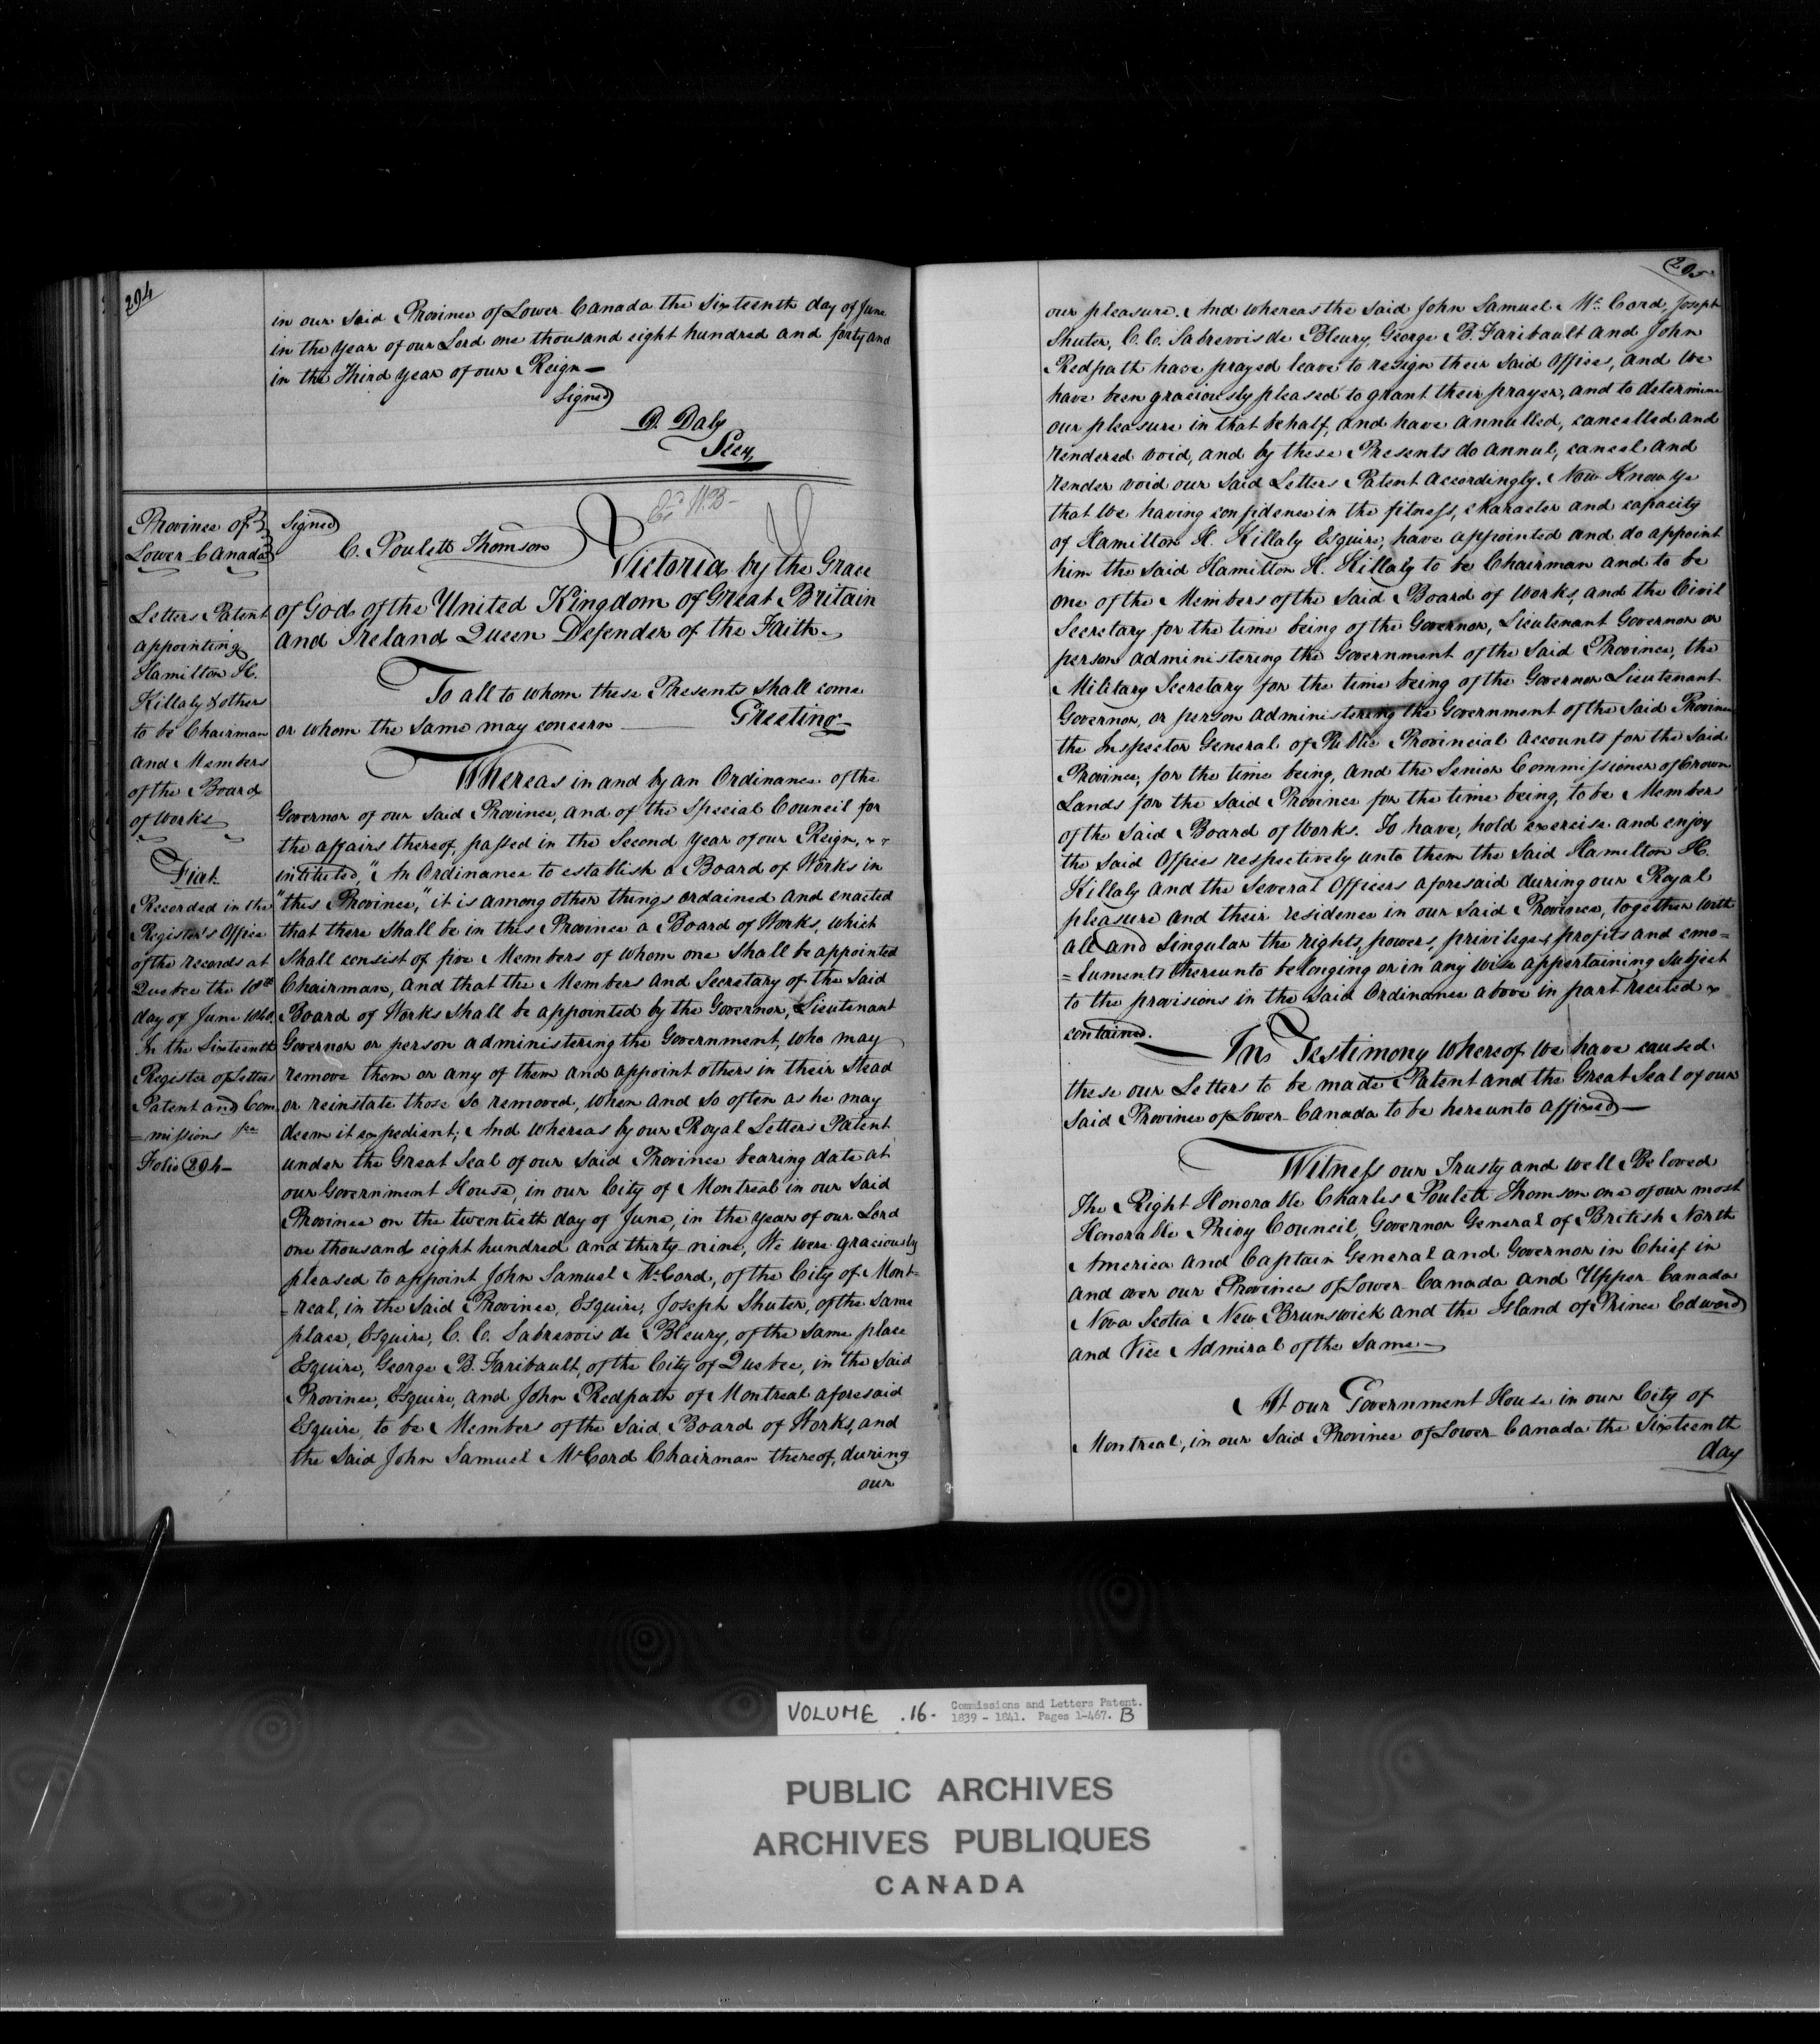 294
in our said Province of Lower Canada the Sixteenth day of June
in the Year of our Lord one thousand eight hundred and forty and
in the Third Year of our Reign —
Signed
D. Daly
Secy.
Province of
Lower Canada
Letters Patent
appointing
Hamilton H.
Killaly & others
to be Chairman
and Members
of the Board
of Works
Fiat
Recorded in the
Register's Office
of the records at
Quebec the 18th
day of June 1840.
In the Sixteenth
Register of Letters
Patent and Com
=missions
Folio 294—
Signed
C. Poulett Thomson
Victoria by the Grace
of God of the United Kingdom of Great Britain
and Ireland Queen Defender of the Faith.
To all to whom these Presents shall come
or whom the same may concern — Greeting—
Whereas in and by an Ordinance of the
Governor of our said Province, and of the Special Council for
the affairs thereof, passed in the Second Year of our Reign,
intituled, "An Ordinance to establish a Board of Works in
"this Province," it is among other things ordained and enacted
that there shall be in this Province a Board of Works, which
shall consist of five Members of whom one shall be appointed
Chairman, and that the Members and Secretary of the said
Board of Works shall be appointed by the Governor, Lieutenant
Governor or person administering the Government, who may
remove them or any of them and appoint others in their Stead
or reinstate those so removed, when and so often as he may
deem it expedient; And whereas by our Royal Letters Patent
under the Great Seal of our said Province bearing date at
our Government House, in our City of Montreal in our said
Province on the twentieth day of June, in the Year of our Lord
one thousand eight hundred and thirty-nine, We were graciously
pleased to appoint John Samuel McCord, of the City of Mont=
=real, in the said Province, Esquire, Joseph Shuter, of the same
place, Esquire, C. C. Sabrevois de Bleury, of the same place
Esquire, George B. Faribault, of the City of Quebec, in the said
Province, Esquire, and John Redpath of Montreal aforesaid
Esquire, to be Members of the said Board of Works, and
the said John Samuel McCord Chairman thereof, during
our
295
our pleasure. And whereas the said John Samuel McCord, Joseph
Shuter, C. C. Sabrevois de Bleury, George B. Faribault and John
Redpath have prayed leave to resign their said Offices, and We
have been graciously pleased to grant their prayer, and to determine
our pleasure in that behalf, and have annulled, cancelled and
rendered void, and by these Presents do annul, cancel and
render void our said Letters Patent accordingly. Now Know Ye
that We having confidence in the fitness, character and capacity
of Hamilton H. Killaly Esquire, have appointed and do appoint
him the said Hamilton H. Killaly to be Chairman and to be
one of the Members of the said Board of Works, and the Civil
Secretary for the time being of the Governor, Lieutenant Governor or
person administering the Government of the said Province, the
Military Secretary for the time being of the Governor Lieutenant
Governor, or person administering the Government of the said Province
the Inspector General of Public Provincial Accounts for the said
Province, for the time being, and the Senior Commissioner of Crown
Lands for the said Province for the time being, to be Members
of the said Board of Works. To have, hold exercise and enjoy
the said Offices respectively unto them the said Hamilton H.
Killaly and the several Officers aforesaid during our Royal
pleasure and their residence in our said Province, together with
all and singular the rights, powers, privileges, profits and emo=
=luments thereunto belonging or in any wise appertaining subject
to the provisions in the said Ordinance above in part recited
contained.
In Testimony whereof We have caused
these our Letters to be made Patent and the Great Seal of our
said Province of Lower Canada to be hereunto affixed—
Witness our Trusty and well Beloved
The Right Honorable Charles Poulett Thomson one of our most
Honorable Privy Council, Governor General of British North
America and Captain General and Governor in Chief in
and over our Provinces of Lower Canada and Upper Canada
Nova Scotia New Brunswick and the Island of Prince Edward
and Vice Admiral of the Same—
At our Government House in our City of
Montreal, in our said Province of Lower Canada the Sixteenth
day
VOLUME .16. Commissions and Letters Patent.
1839 - 1841. Pages 1-467. B
PUBLIC ARCHIVES
ARCHIVES PUBLIQUES
CANADA